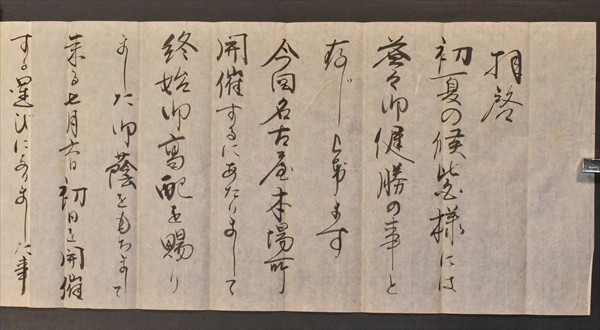 拝啓
初夏の候皆様には
益々御健勝の事と
存じ上げます
今回名古屋本場所
開催するにあたりまして
終始御高配を賜り
ました御蔭をもちまして
来る七月六日初日を開催
する運びになりました事